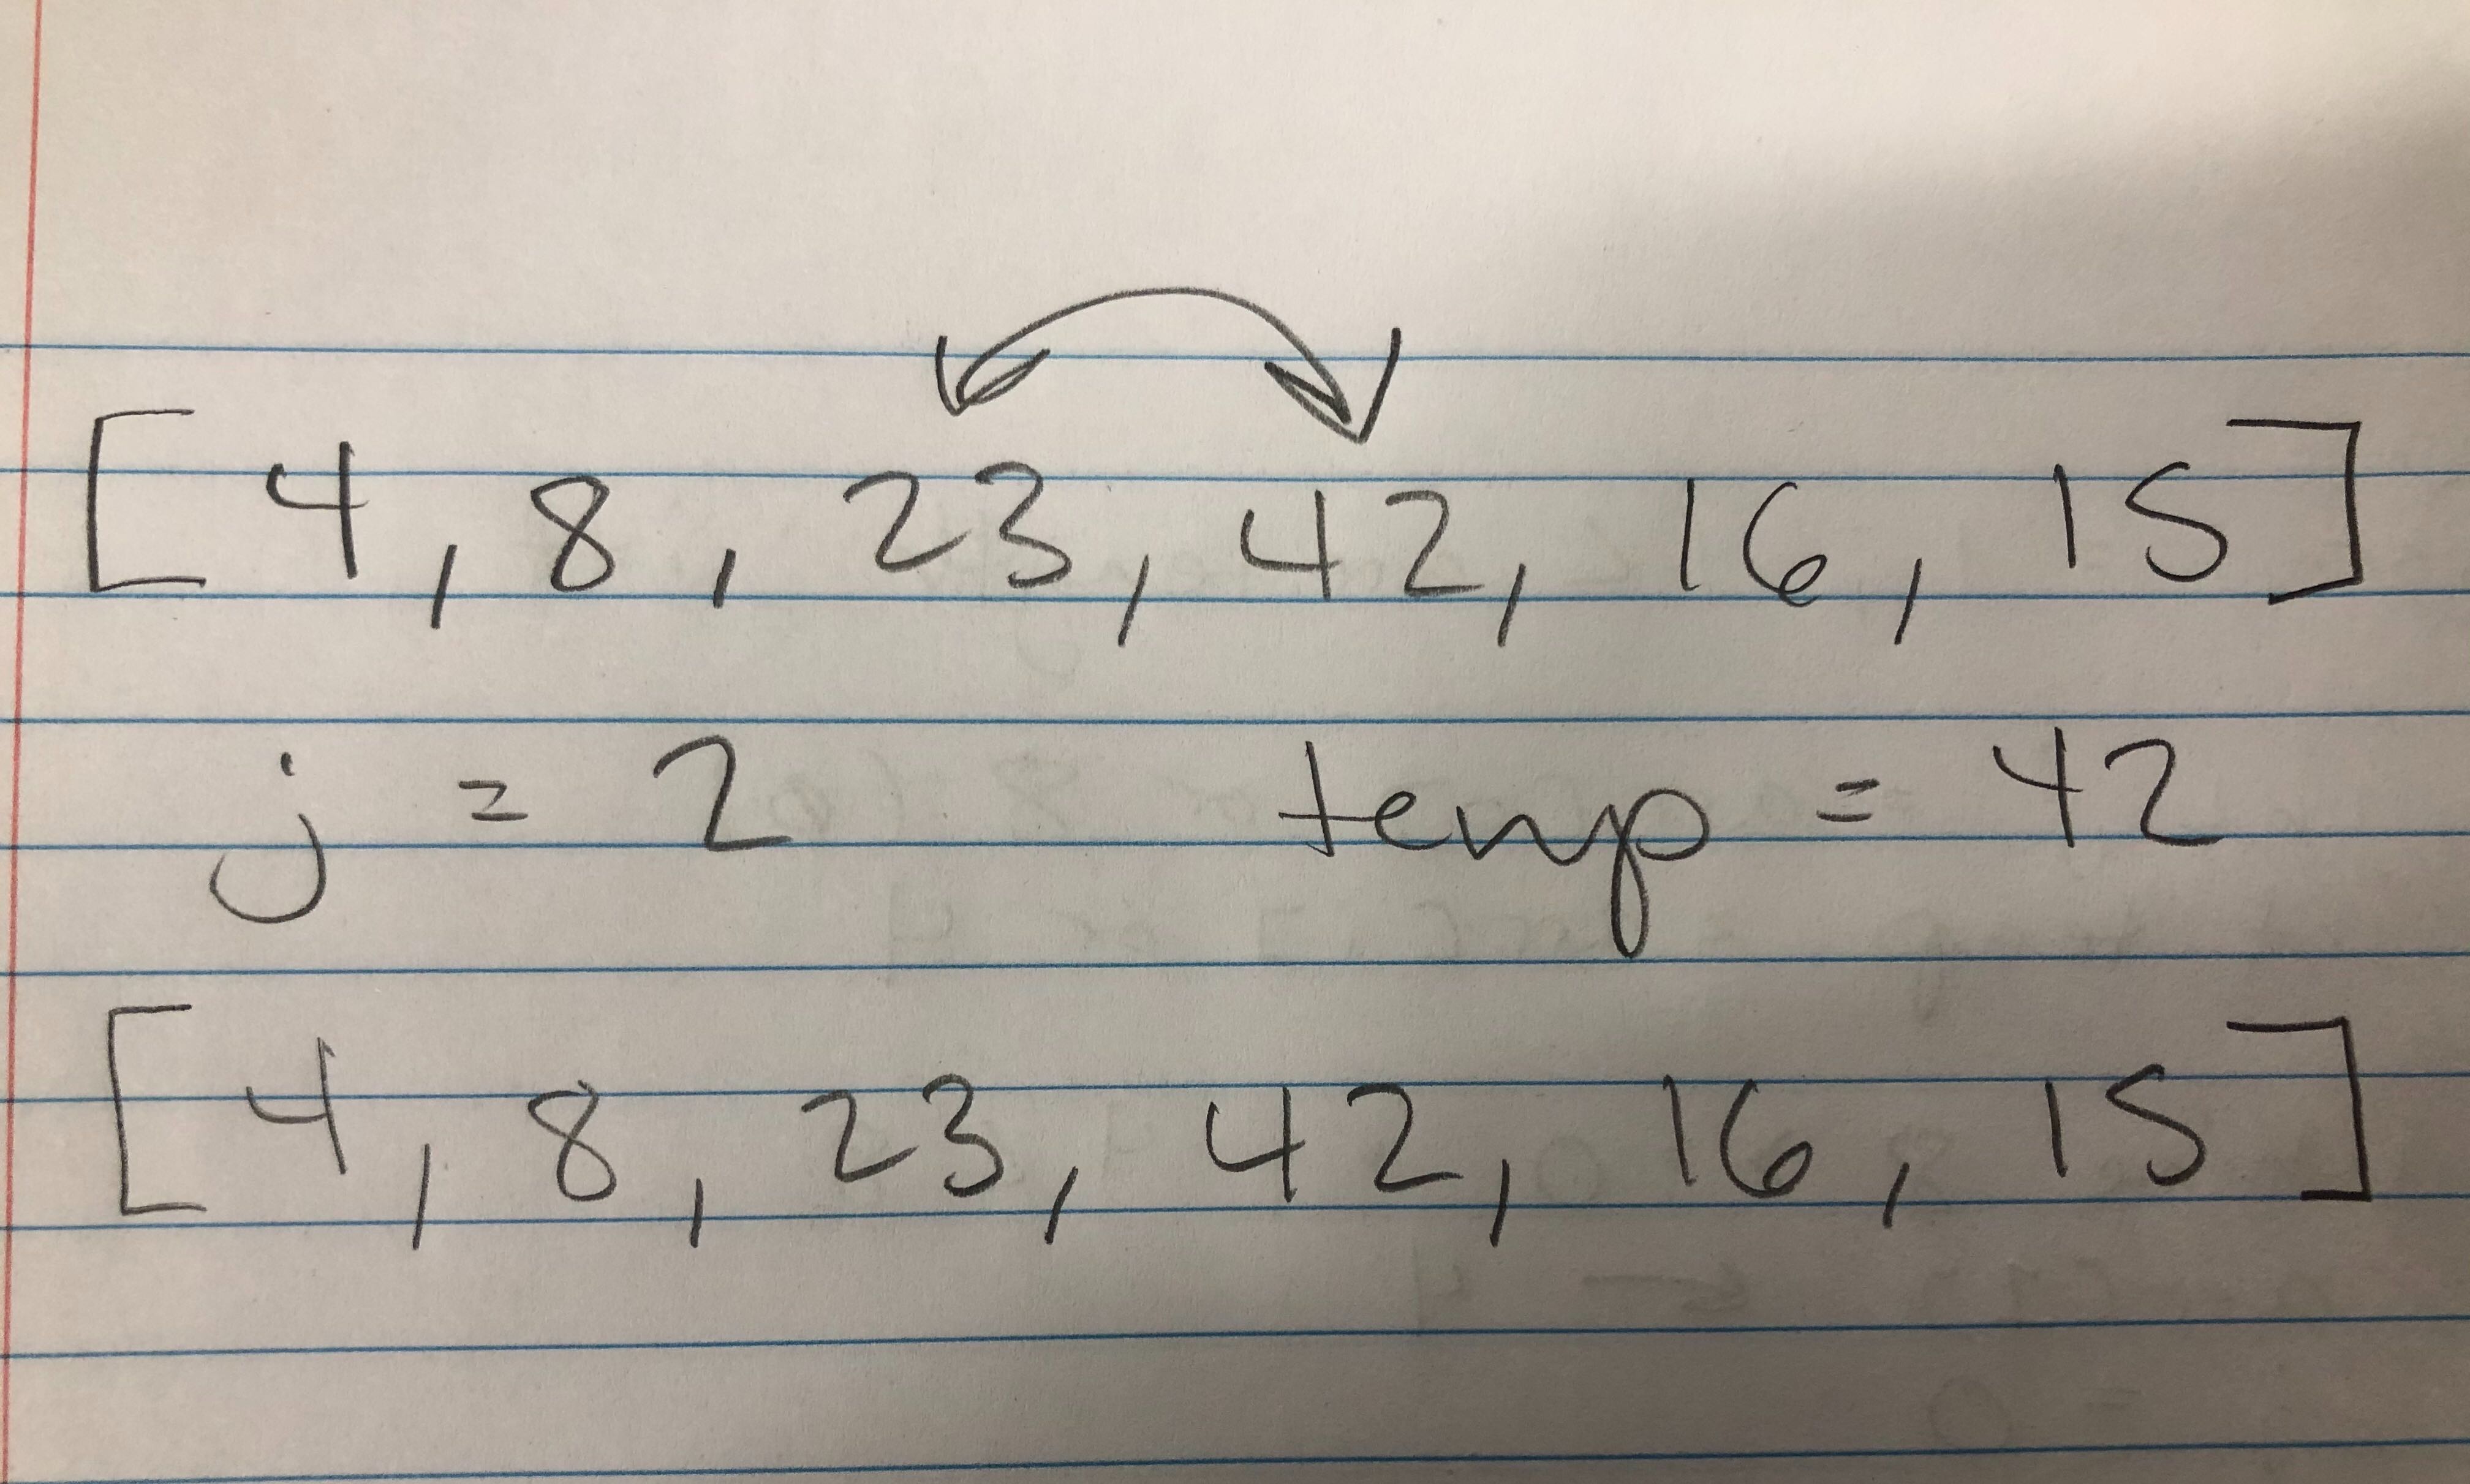 [ 4, 8, 23, 42, 16, 15 ]
j = 2 temp = 42
[ 4, 8, 23, 42, 16, 15 ]